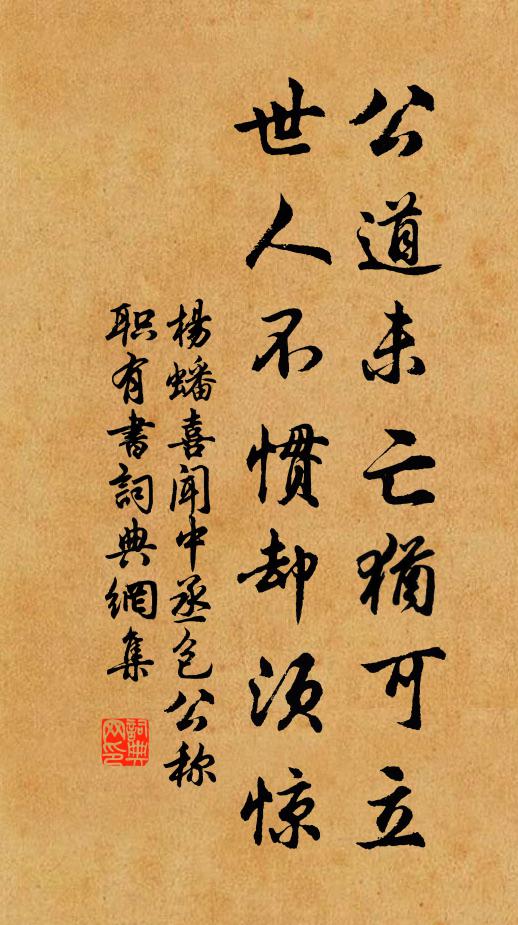 公道未亡犹可立
世人不惯却须惊
杨蟠喜闻中丞包公称
职有书詞典網集
詞典
网印